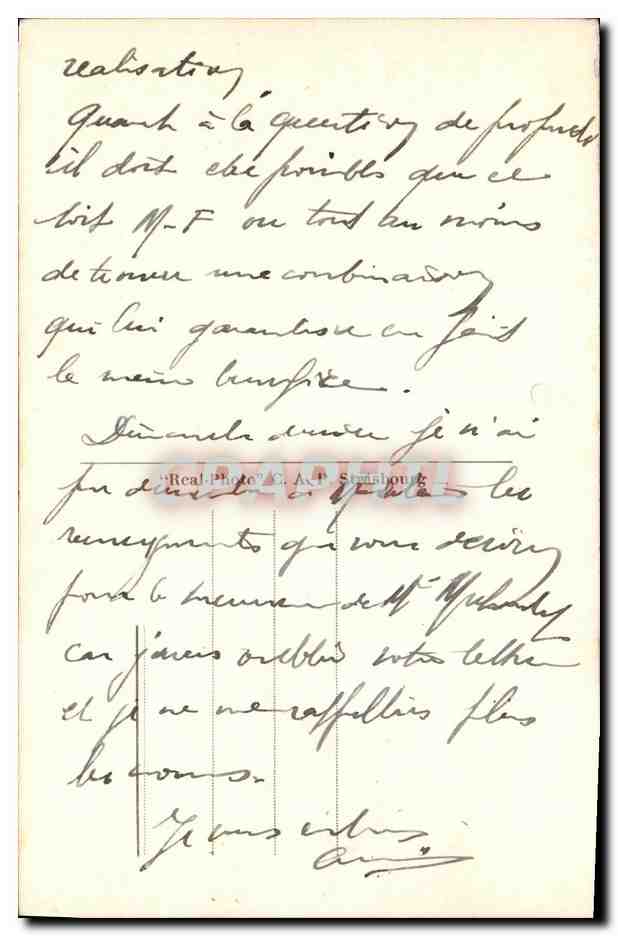 realisation
Quant à la question de
il doit etre possible que ce
soit M-F ou tout au moins
de trouver une combinaison
qui lui garantisse en fait
le meme benefice.
Dimanche dernier je n'ai
"Real-Photo" C. A. P. Strasbourg
pu demander à les
renseignements que vous desirez
pour le de Mr
car j'avais oublié votre lettre
et je ne me rappellais plus
les noms.
Je vous